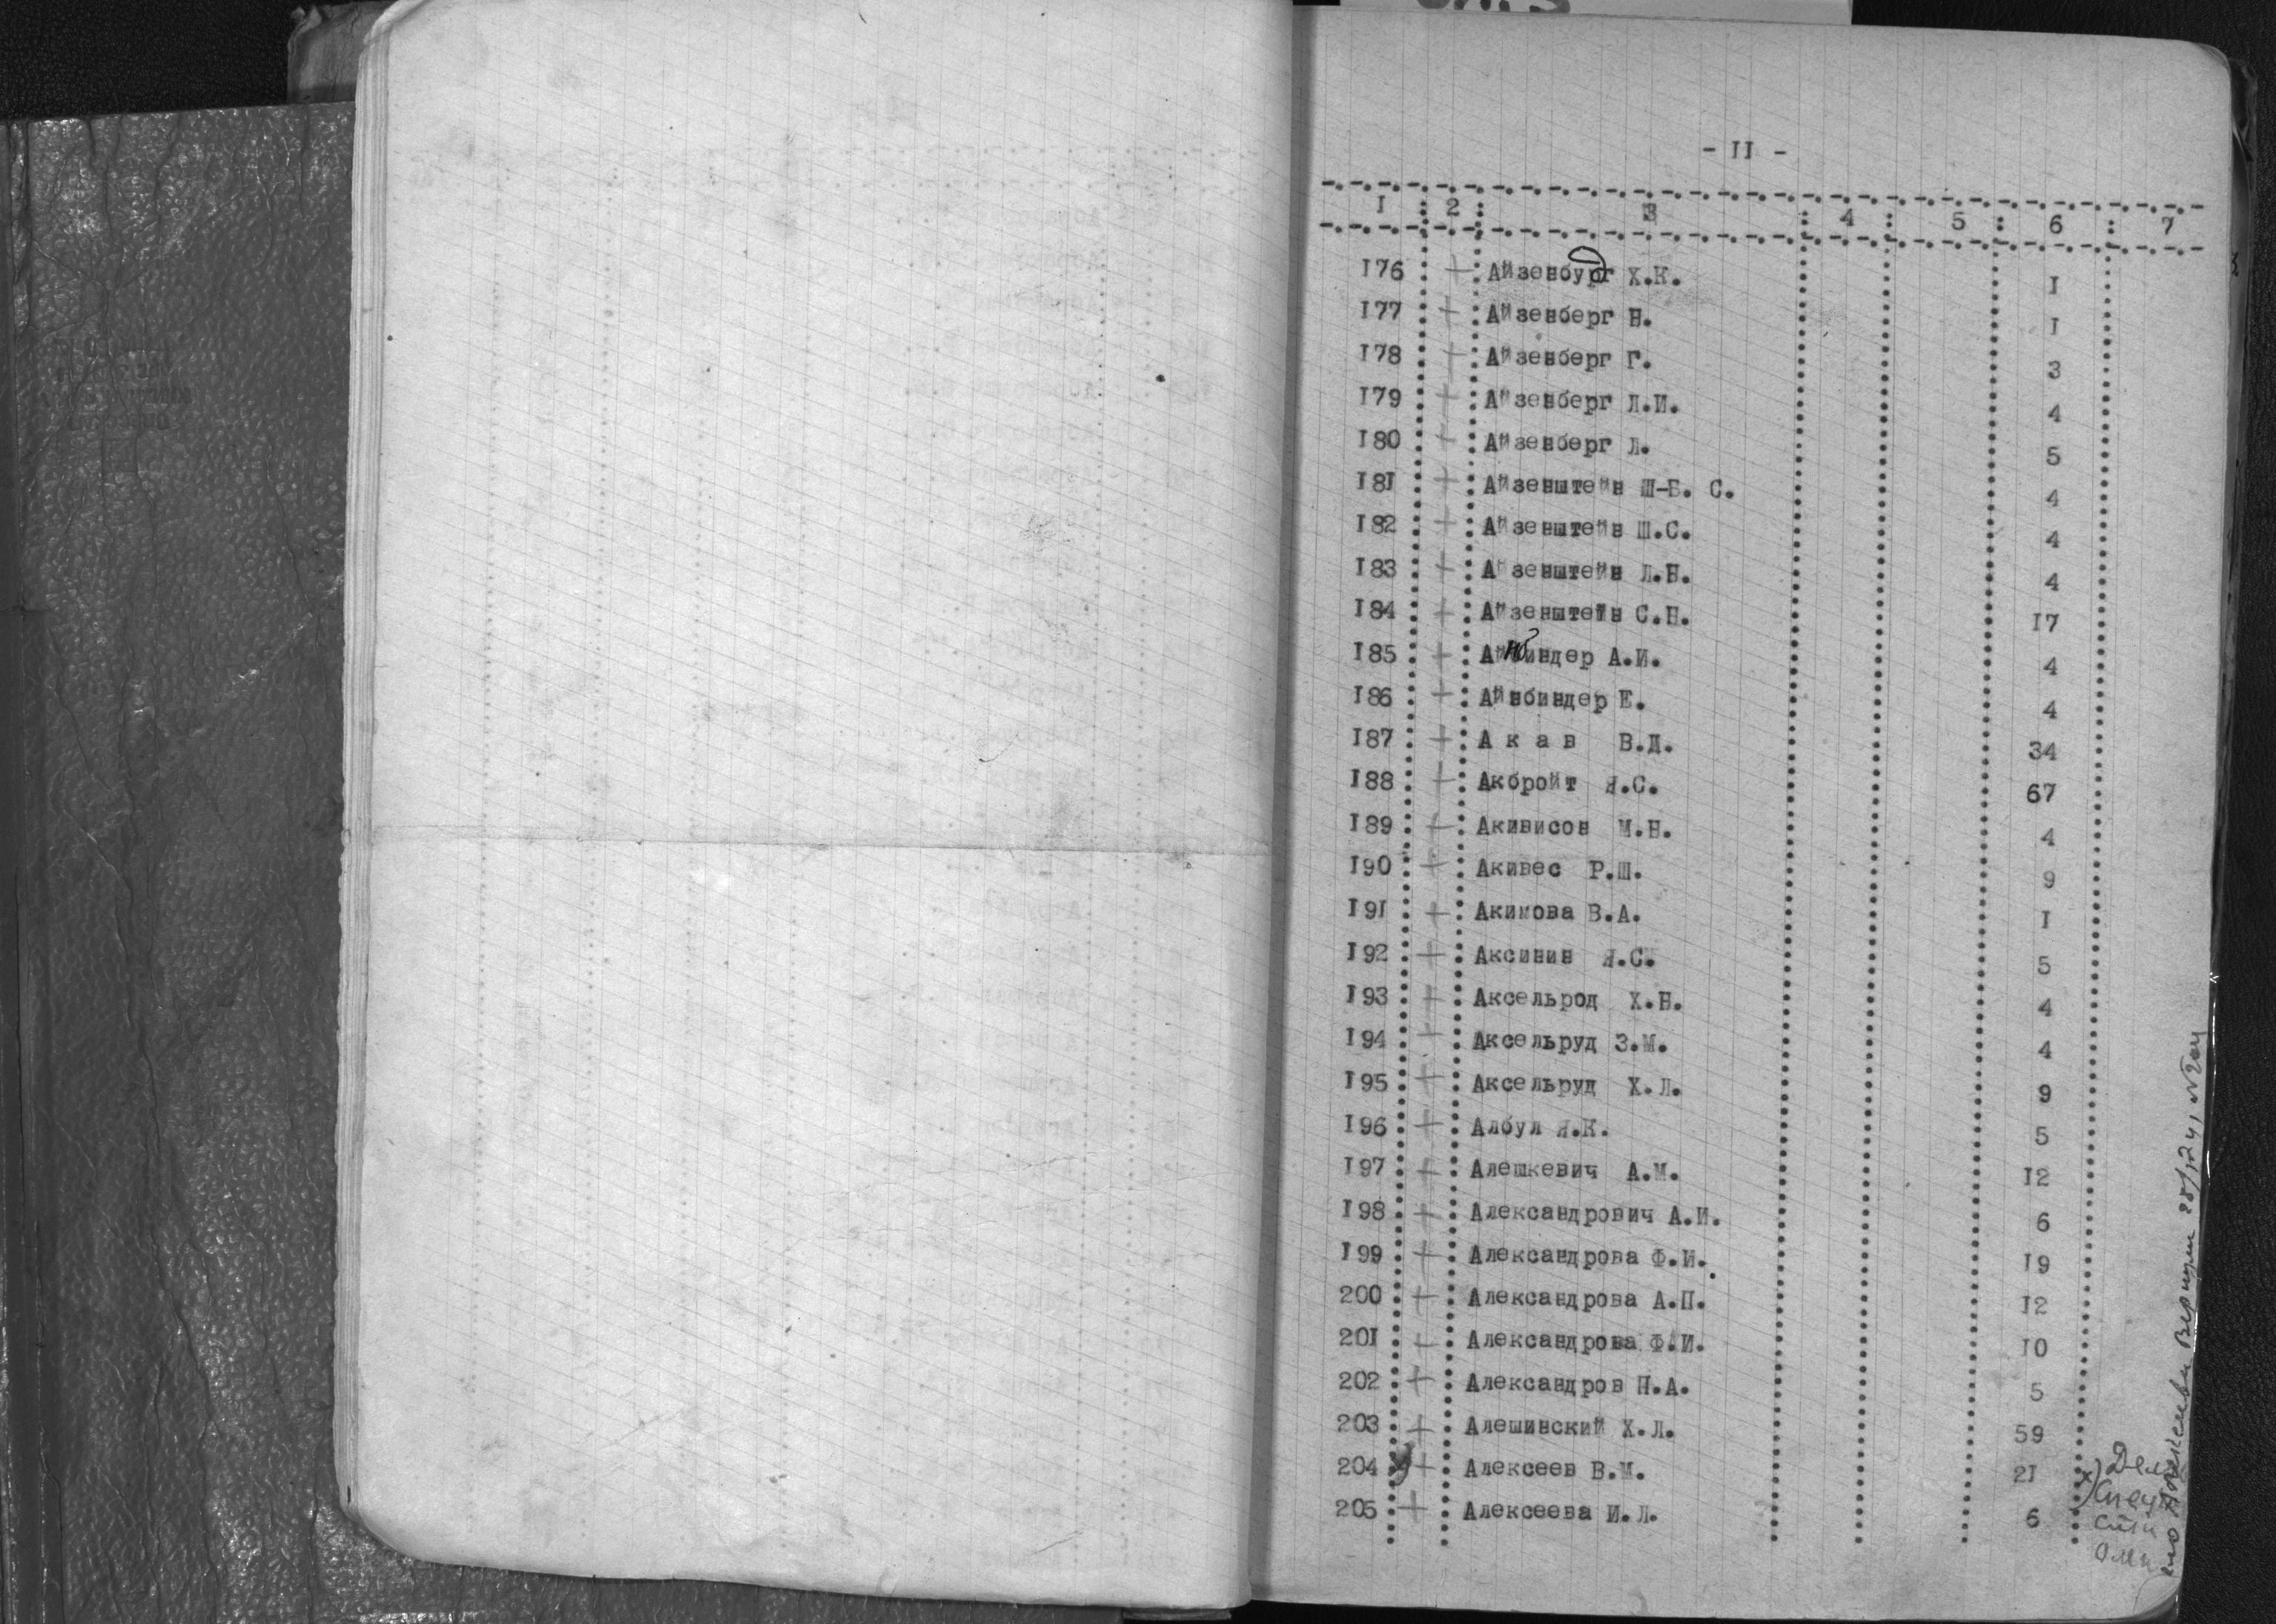 - II -
I : 2 : 3 : 4 : 5 : 6 : 7
I76 + Айзенбург Х.К. I
I77 + Айзенберг Н. I
I78 + Айзенберг Г. 3
I79 + Айзенберг Л.И. 4
I80 + Айзенберг Л. 5
I8I + Айзенштейн Ш-Б. С. 4
I82 + Айзенштейн Ш.С. 4
I83 + Айзенштейн Л.Н. 4
I84 + Айзенштейн С.Н. I7
I85 + Айнбиндер А.И. 4
I86 + Айнбиндер Е. 4
I87 + А к а в В.Д. 34
I88 + Акбройт Я.С. 67
I89 + Акивисон М.Н. 4
I90 + Акивес Р.Ш. 9
I9I + Акимова В.А. I
I92 + Аксинин Я.С. 5
I93 + Аксельрод Х.Н. 4
I94 + Аксельруд З.М. 4
I95 + Аксельруд Х.Л. 9
I96 + Албул Я.К. 5
I97 + Алешкевич А.М. I2
I98 + Александрович А.И. 6
I99 + Александрова Ф.И. I9
200 + Александрова А.П. I2
20I + Александрова Ф.И. I0
202 + Александров П.А. 5
203 + Алешинский Х.Л. 59
204 + Алексеев В.М. 2I
205 + Алексеева И.Л. 6